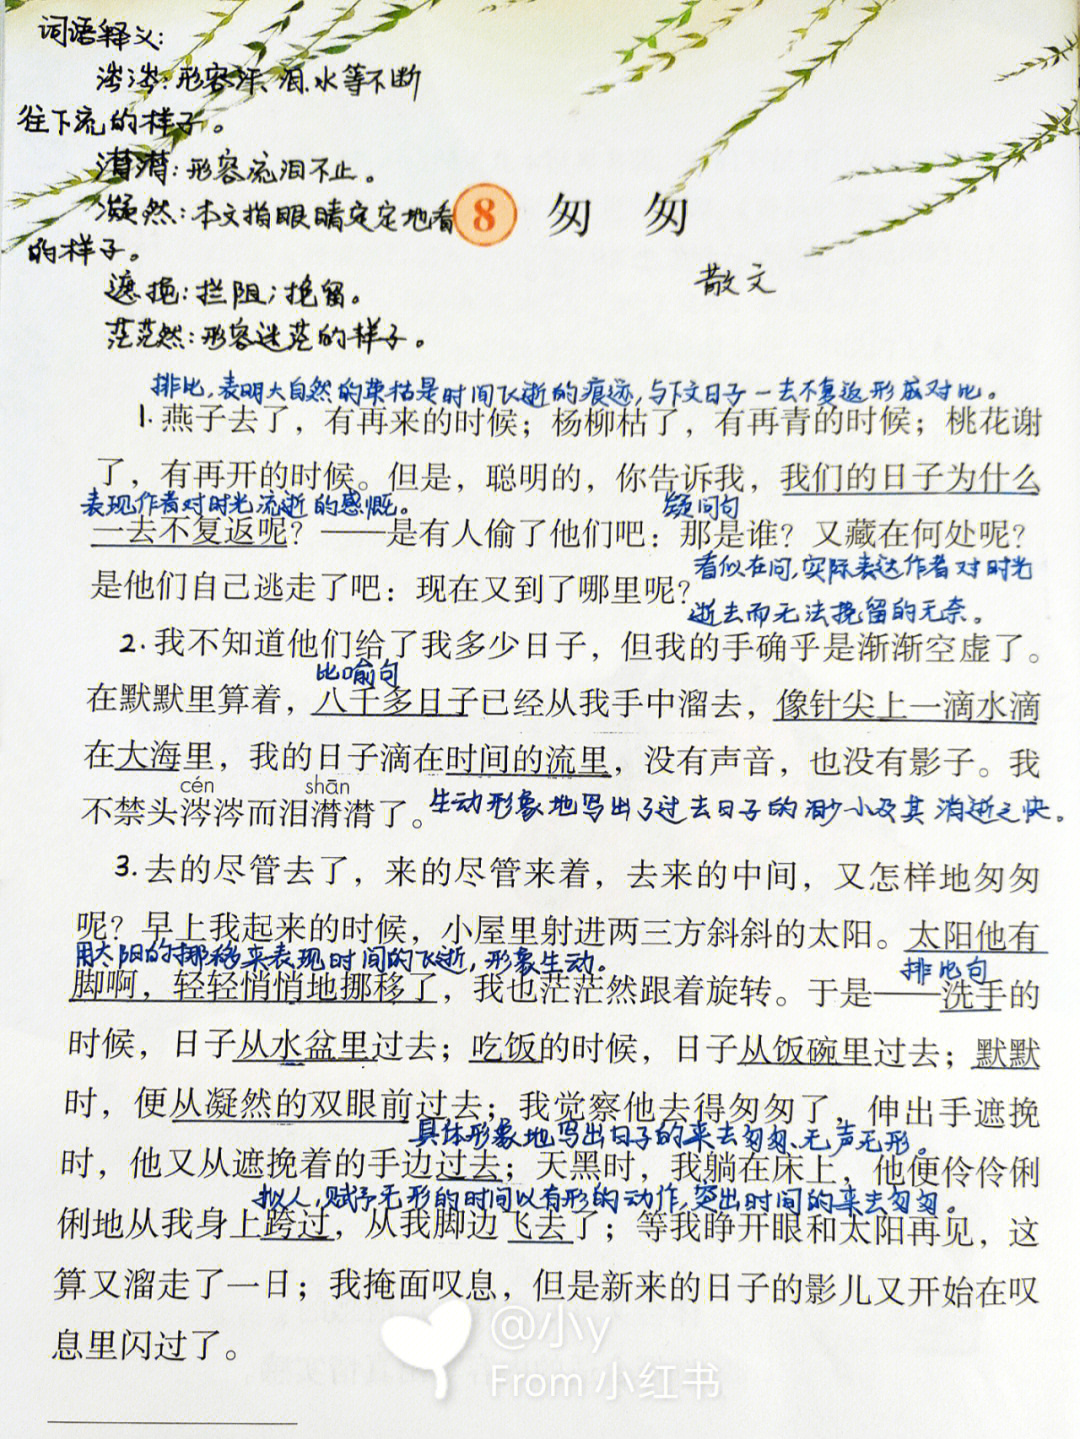 词语释义:
涔涔:形容汗、泪、水等不断
往下流的样子。
潸潸:形容流泪不止。
凝然:本文指眼睛定定地看
的样子。
8 匆 匆
遮挽:拦阻;挽留。
散文
茫茫然:形容迷茫的样子。
排比,表明大自然的荣枯是时间飞逝的痕迹,与下文日子一去不复返形成对比。
1.燕子去了，有再来的时候；杨柳枯了，有再青的时候；桃花谢
了，有再开的时候。但是，聪明的，你告诉我，我们的日子为什么
表现作者对时光流逝的感慨。 疑问句
一去不复返呢？——是有人偷了他们吧：那是谁？又藏在何处呢？
看似在问,实际表达作者对时光
是他们自己逃走了吧：现在又到了哪里呢？
逝去而无法挽留的无奈。
2.我不知道他们给了我多少日子，但我的手确乎是渐渐空虚了。
比喻句
在默默里算着，八千多日子已经从我手中溜去，像针尖上一滴水滴
在大海里，我的日子滴在时间的流里，没有声音，也没有影子。我
cén shān
不禁头涔涔而泪潸潸了。生动形象地写出了过去日子的渺小及其消逝之快。
3.去的尽管去了，来的尽管来着，去来的中间，又怎样地匆匆
呢？早上我起来的时候，小屋里射进两三方斜斜的太阳。太阳他有
用太阳的挪移来表现时间的飞逝,形象生动。 排比句
脚啊，轻轻悄悄地挪移了，我也茫茫然跟着旋转。于是——洗手的
时候，日子从水盆里过去；吃饭的时候，日子从饭碗里过去；默默
时，便从凝然的双眼前过去；我觉察他去得匆匆了，伸出手遮挽
具体形象地写出日子的来去匆匆、无声无形。
时，他又从遮挽着的手边过去；天黑时，我躺在床上，他便伶伶俐
拟人,赋予无形的时间以有形的动作,突出时间的来去匆匆。
俐地从我身上跨过，从我脚边飞去了；等我睁开眼和太阳再见，这
算又溜走了一日；我掩面叹息，但是新来的日子的影儿又开始在叹
息里闪过了。
@小y
From 小红书